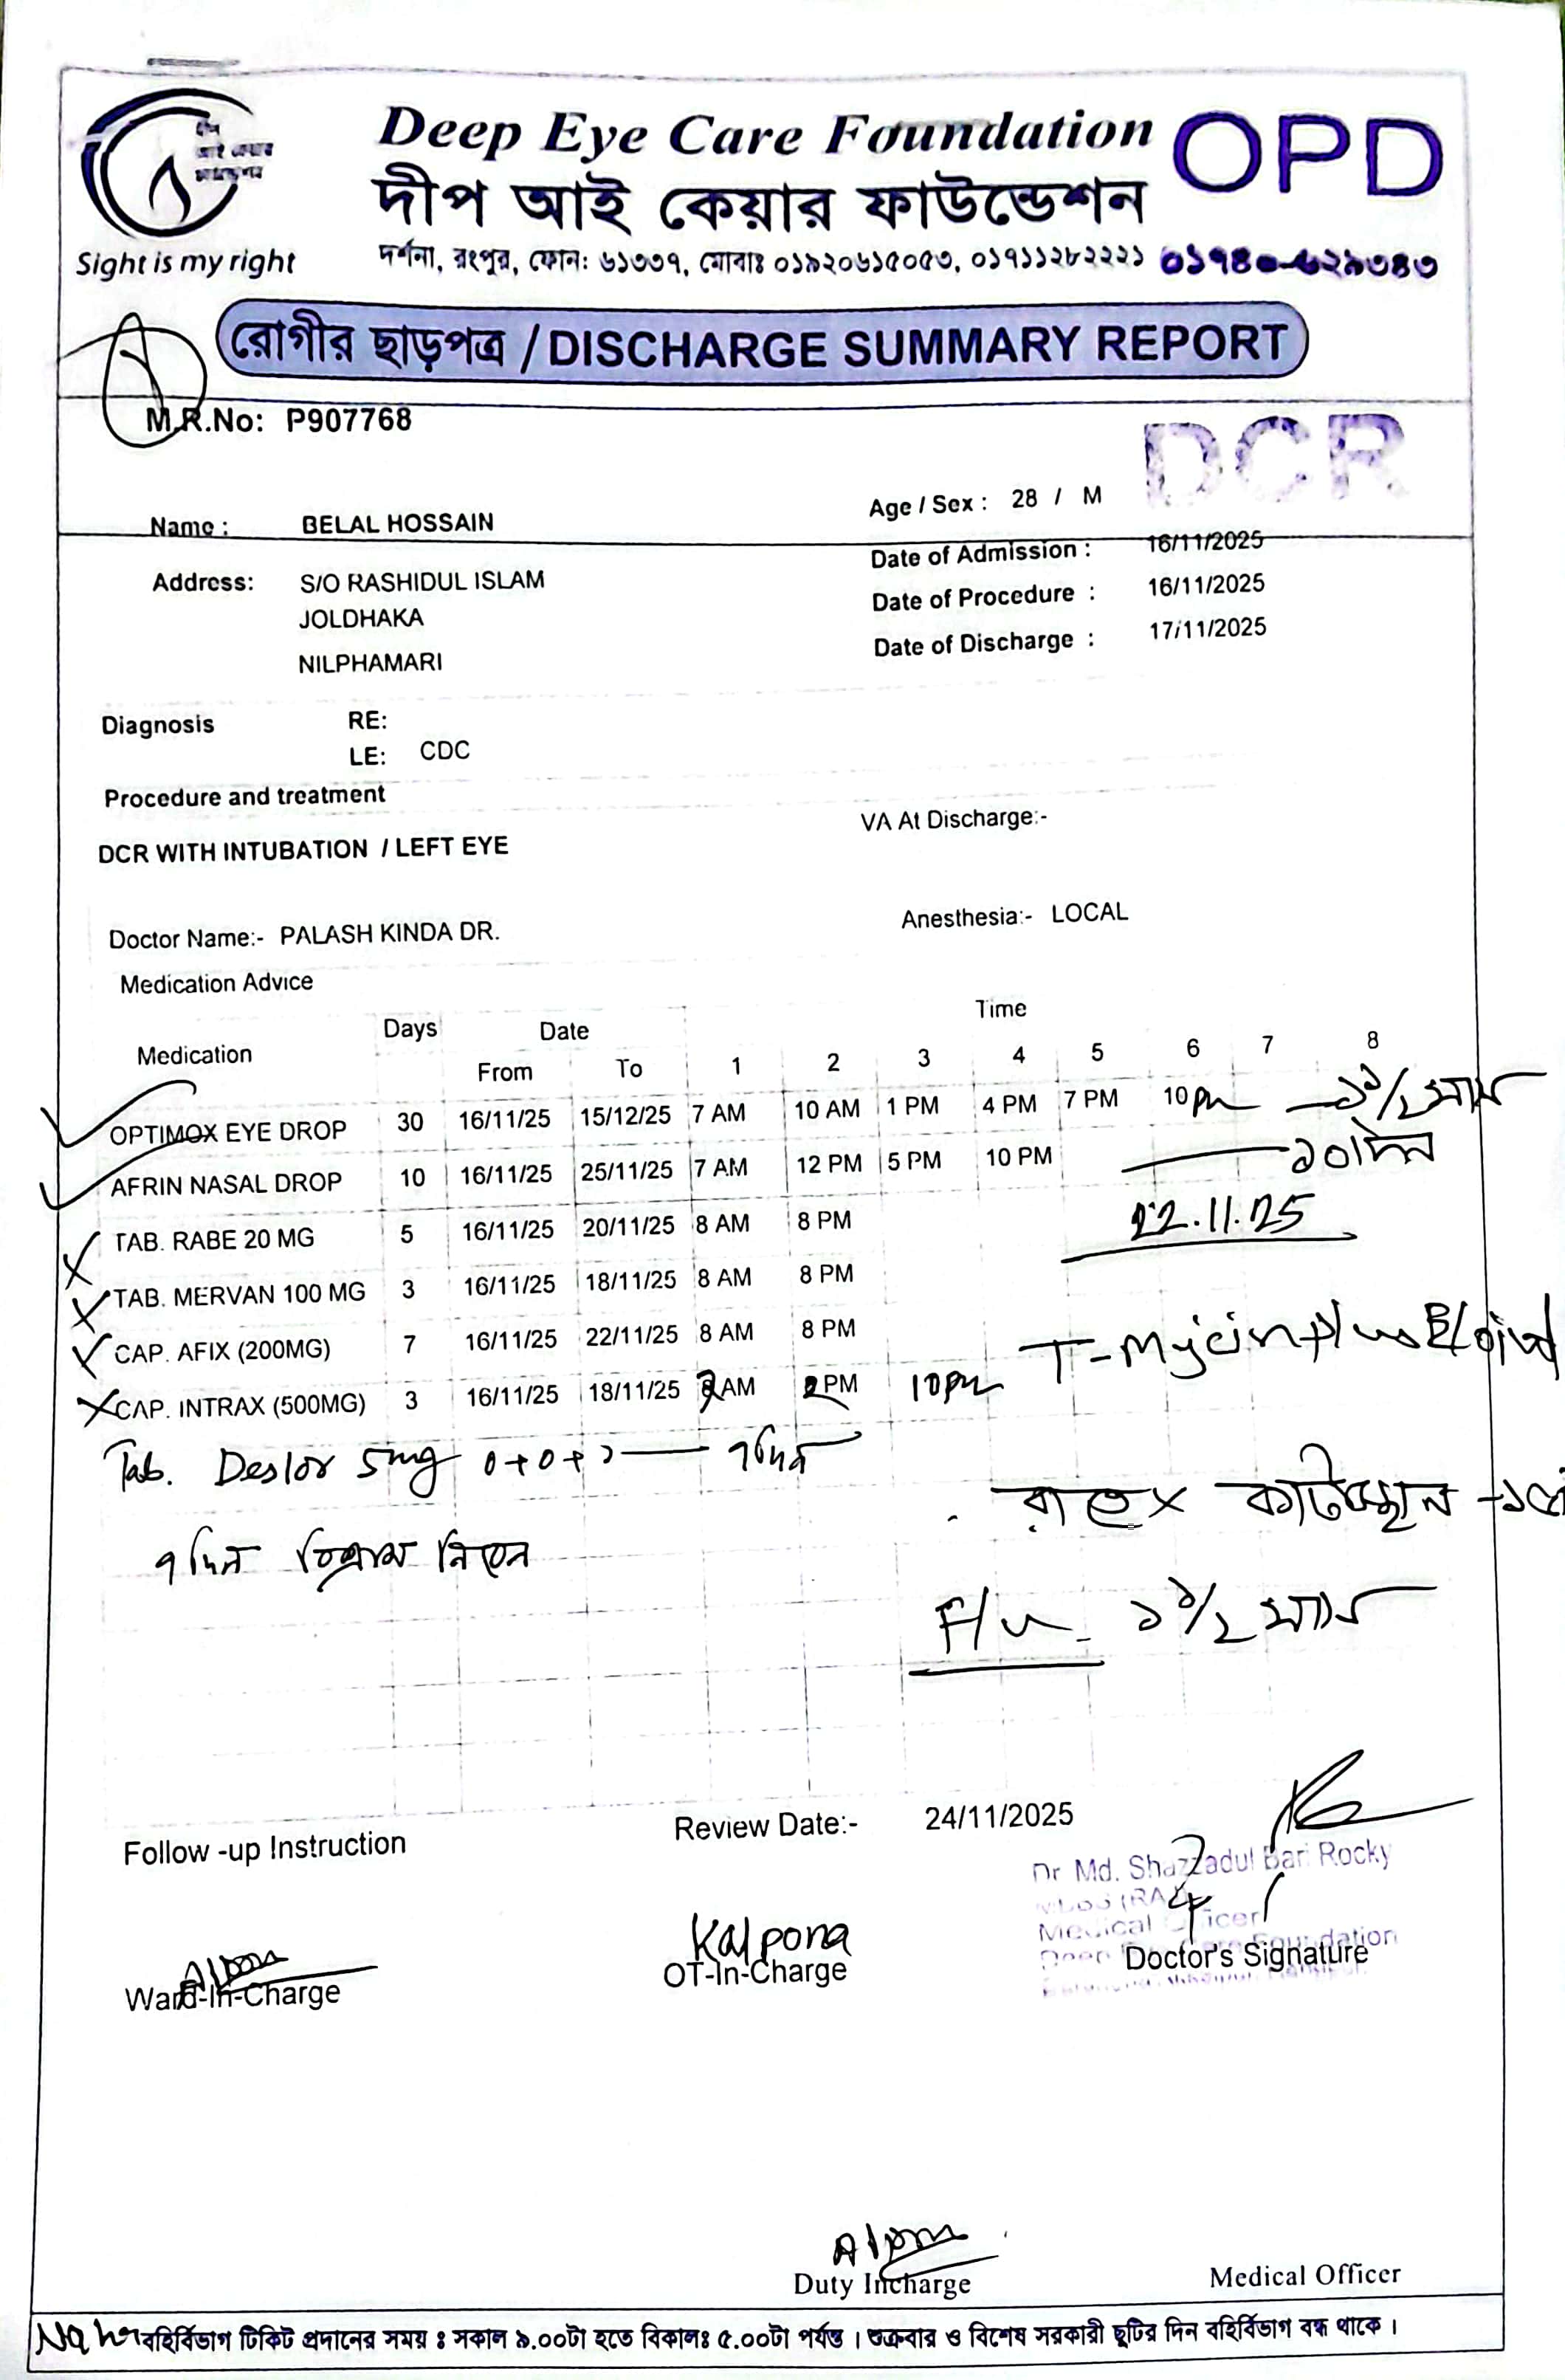 দীপ
আই কেয়ার
ফাউন্ডেশন
Sight is my right
Deep Eye Care Foundation
OPD
দীপ আই কেয়ার ফাউন্ডেশন
দর্শনা, রংপুর, ফোন: ৬১৩৩৭, মোবাঃ ০১৯২০৬১৫০৫৩, ০১৭১১২৮২২২১ ০১৭৪০-৬২৯৩৪৩
রোগীর ছাড়পত্র / DISCHARGE SUMMARY REPORT
M.R.No: P907768
DCR
Name : BELAL HOSSAIN Age / Sex : 28 / M
Date of Admission : 16/11/2025
Address: S/O RASHIDUL ISLAM Date of Procedure : 16/11/2025
JOLDHAKA
Date of Discharge : 17/11/2025
NILPHAMARI
Diagnosis RE:
LE: CDC
Procedure and treatment
VA At Discharge:-
DCR WITH INTUBATION / LEFT EYE
Doctor Name:- PALASH KINDA DR. Anesthesia:- LOCAL
Medication Advice
Medication Days Date Time
From To 1 2 3 4 5 6 7 8
OPTIMOX EYE DROP 30 16/11/25 15/12/25 7 AM 10 AM 1 PM 4 PM 7 PM 10 pm — ১ ১/২ মাস
AFRIN NASAL DROP 10 16/11/25 25/11/25 7 AM 12 PM 5 PM 10 PM — ১০ দিন
TAB. RABE 20 MG 5 16/11/25 20/11/25 8 AM 8 PM
22.11.25
TAB. MERVAN 100 MG 3 16/11/25 18/11/25 8 AM 8 PM
CAP. AFIX (200MG) 7 16/11/25 22/11/25 8 AM 8 PM
T-mycin plus E/oint
CAP. INTRAX (500MG) 3 16/11/25 18/11/25 AM 2 PM 10 pm
Tab. Deslor 5mg 0+0+১ — ৭ দিন
৭ দিন বিশ্রাম নিবেন
F/u - ১ ১/২ মাস
Follow -up Instruction Review Date:- 24/11/2025
Dr Md. Shazzadul Bari Rocky
Medical Officer
Deep Eye Care Foundation
Kalpona
Ward-In-Charge OT-In-Charge Doctor's Signature
Duty Incharge Medical Officer
বহির্বিভাগ টিকিট প্রদানের সময় ঃ সকাল ৯.০০টা হতে বিকালঃ ৫.০০টা পর্যন্ত । শুক্রবার ও বিশেষ সরকারী ছুটির দিন বহির্বিভাগ বন্ধ থাকে ।